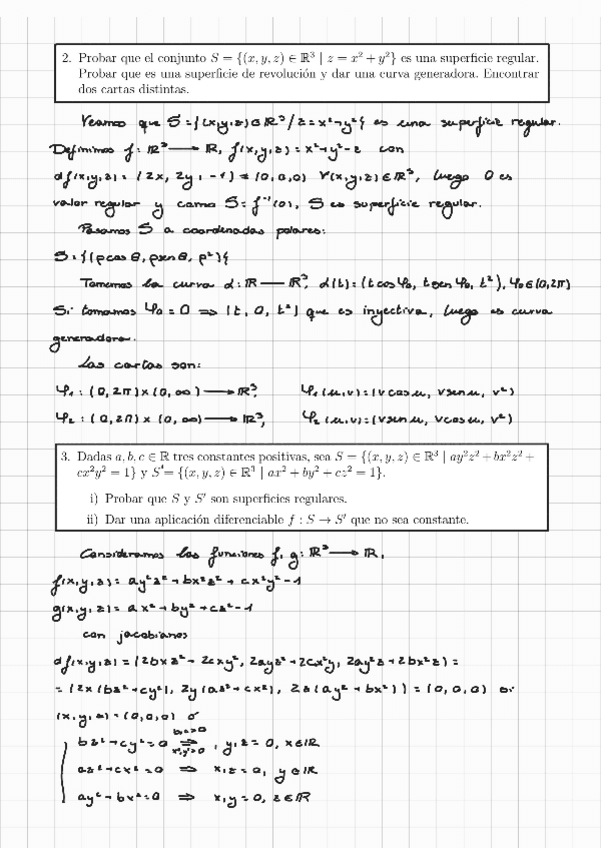 2. Probar que el conjunto S = {(x, y, z) ∈ ℝ³ | z = x² + y²} es una superficie regular.
Probar que es una superficie de revolución y dar una curva generadora. Encontrar
dos cartas distintas.
Veamos que S = {(x,y,z) ∈ ℝ³ / z = x²+y²} es una superficie regular.
Definimos f: ℝ³ → ℝ, f(x,y,z) = x²+y²-z con
df(x,y,z) = (2x, 2y, -1) ≠ (0,0,0) ∀(x,y,z) ∈ ℝ³, luego 0 es
valor regular y como S = f⁻¹(0), S es superficie regular.
Pasamos S a coordenadas polares:
S = {(ρcos θ, ρsen θ, ρ²)}
Tomemos la curva α: ℝ → ℝ³, α(t) = (t cos φ₀, t sen φ₀, t²), φ₀ ∈ (0,2π)
Si tomamos φ₀ = 0 ⇒ (t, 0, t²) que es inyectiva, luego es curva
generadora.
Las cartas son:
φ₁: (0, 2π) × (0, ∞) → ℝ³, φ₁(u,v) = (v cos u, v sen u, v²)
φ₂: (0, 2π) × (0, ∞) → ℝ³, φ₂(u,v) = (v sen u, v cos u, v²)
3. Dadas a, b, c ∈ ℝ tres constantes positivas, sea S = {(x, y, z) ∈ ℝ³ | ay²z² + bx²z² +
cx²y² = 1} y S' = {(x, y, z) ∈ ℝ³ | ax² + by² + cz² = 1}.
i) Probar que S y S' son superficies regulares.
ii) Dar una aplicación diferenciable f : S → S' que no sea constante.
Consideramos las funciones f, g: ℝ³ → ℝ,
f(x,y,z) = ay²z² + bx²z² + cx²y² - 1
g(x,y,z) = ax² + by² + cz² - 1
con jacobianos
df(x,y,z) = (2bxz² + 2cxy², 2ayz² + 2cx²y, 2ay²z + 2bx²z) =
= (2x(bz²+cy²), 2y(az²+cx²), 2z(ay²+bx²)) = (0,0,0) si
(x,y,z) = (0,0,0) ó
bz²+cy² = 0 ⇒ , y,z = 0, x ∈ ℝ
az²+cx² = 0 ⇒ x,z = 0, y ∈ ℝ
ay²+bx² = 0 ⇒ x,y = 0, z ∈ ℝ